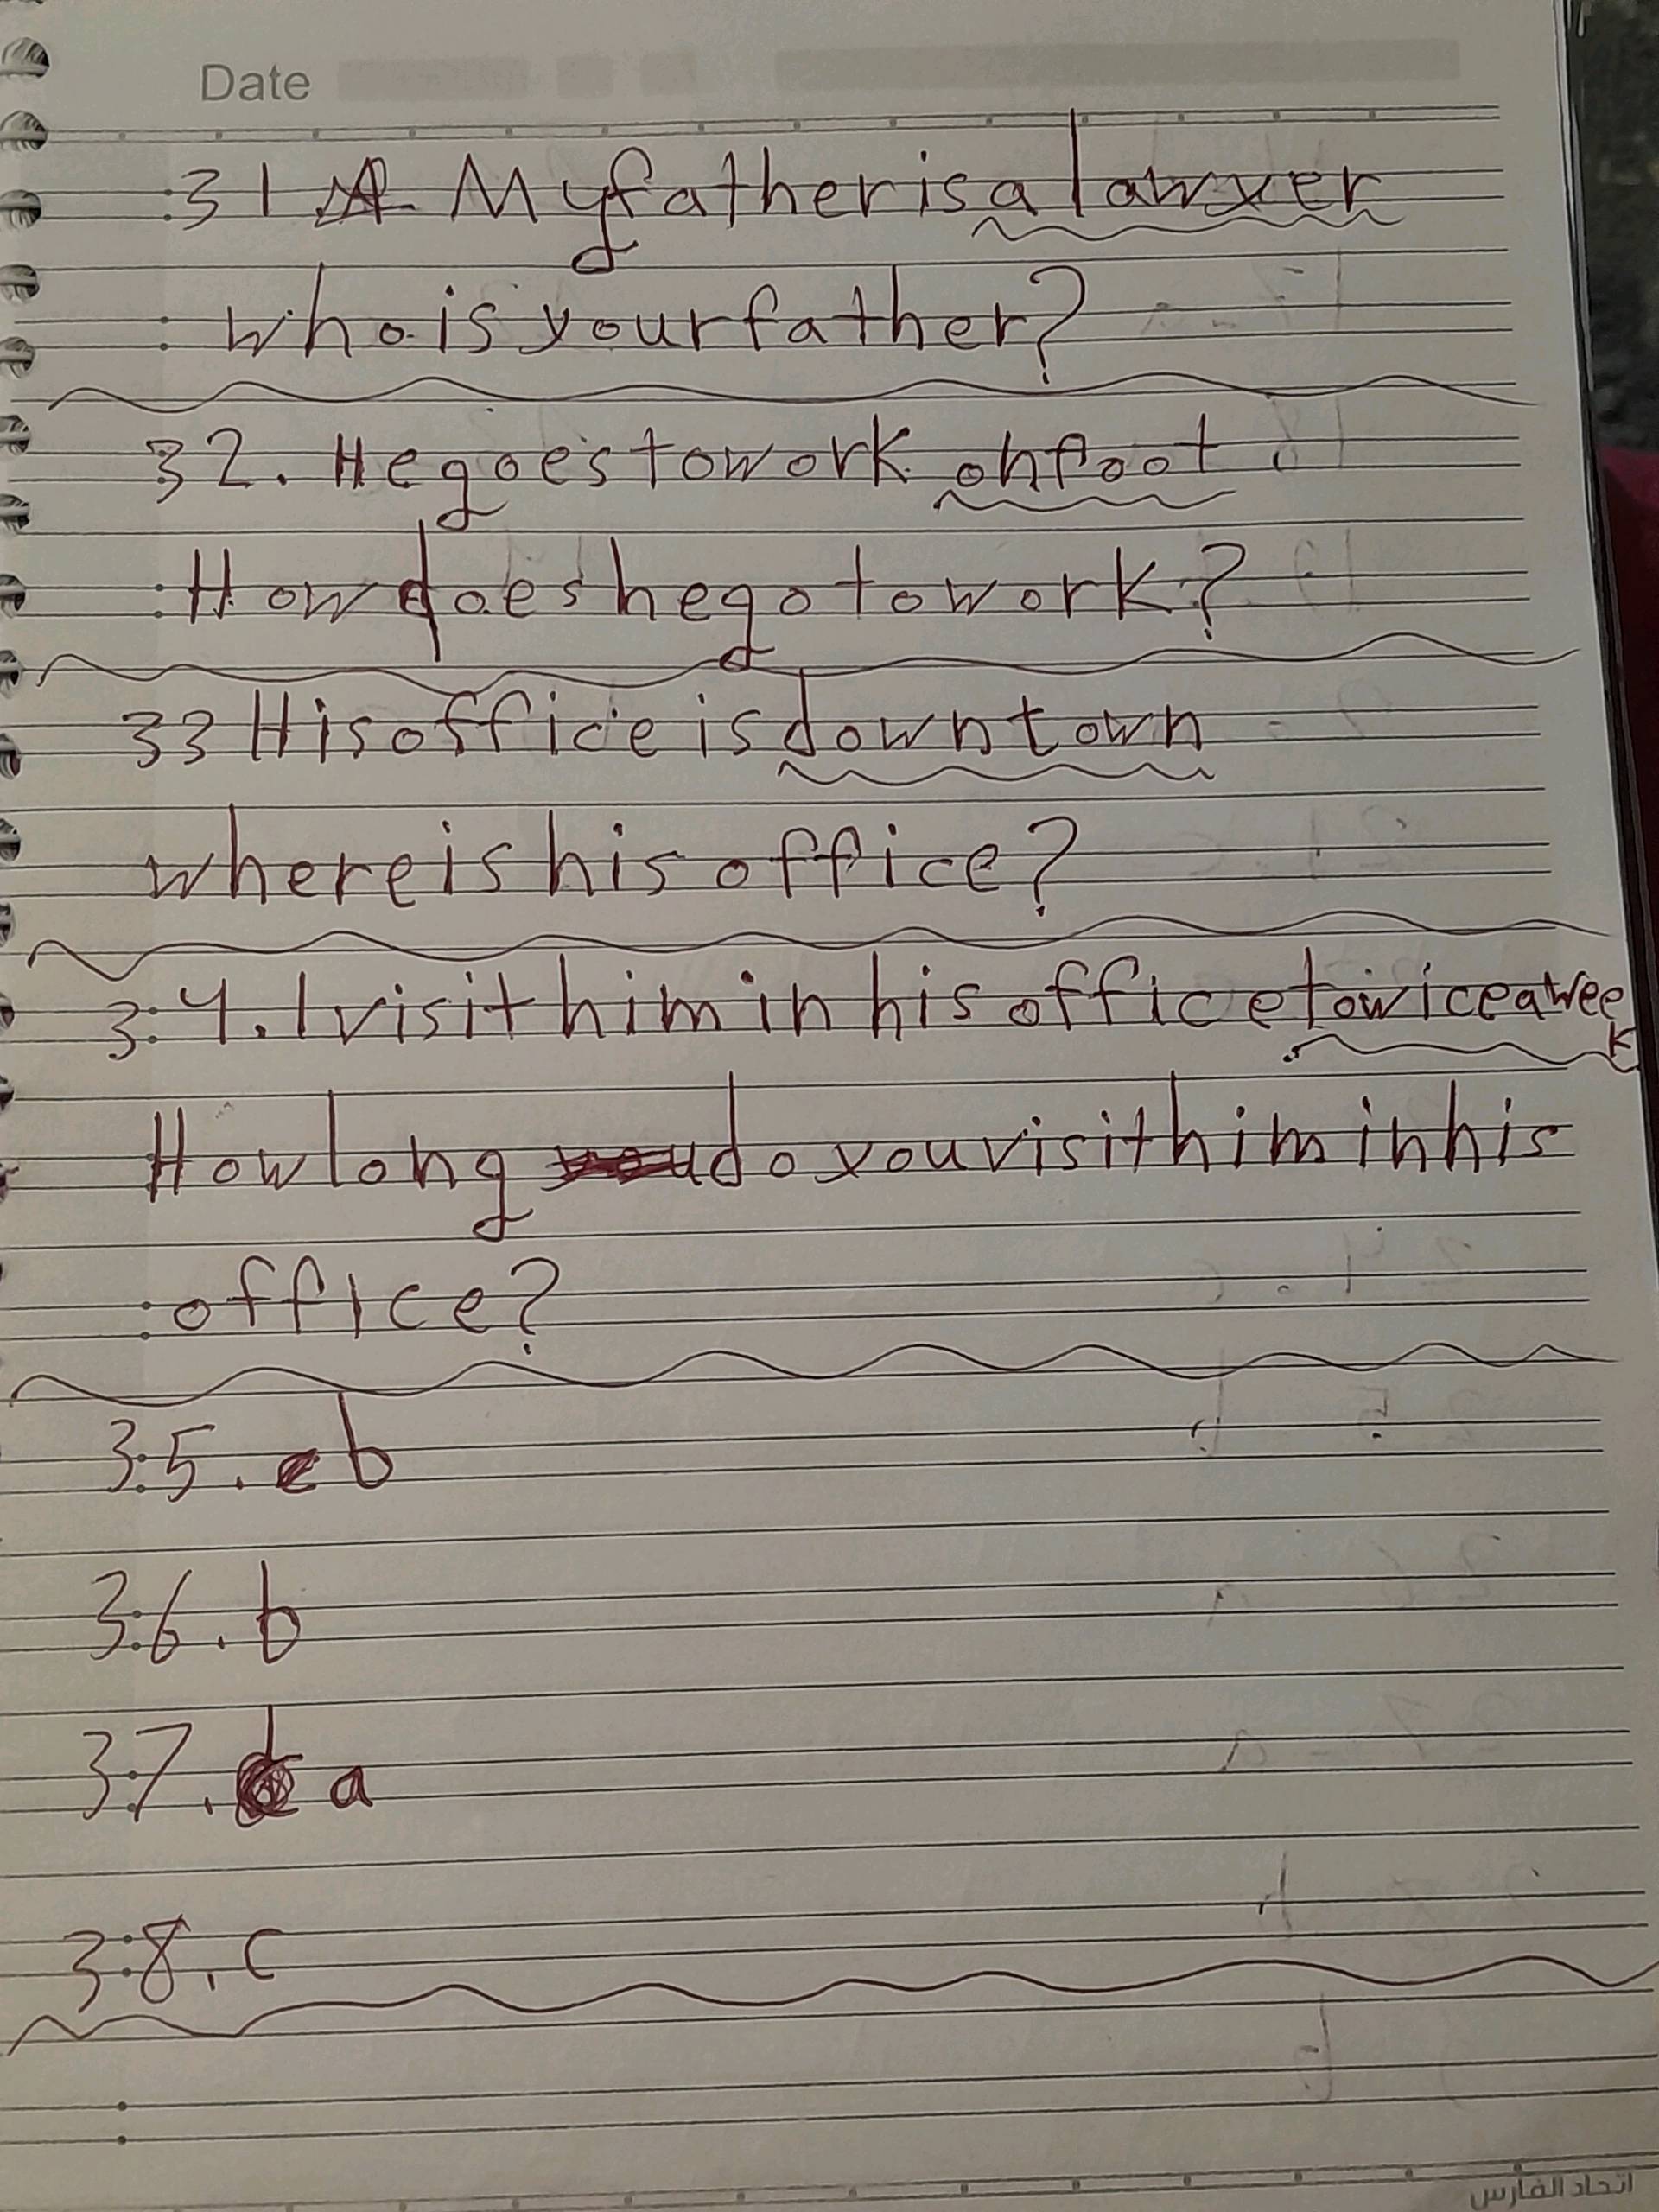 Date
31 My father is a lawyer
who is your father?
32. He goes to work on foot.
How does he go to work?
33 His office is downtown
where is his office?
34. I visit him in his office towice a week
How long do you visit him in his
office?
35. b
36. b
37. a
38. c
اتحاد الفارس